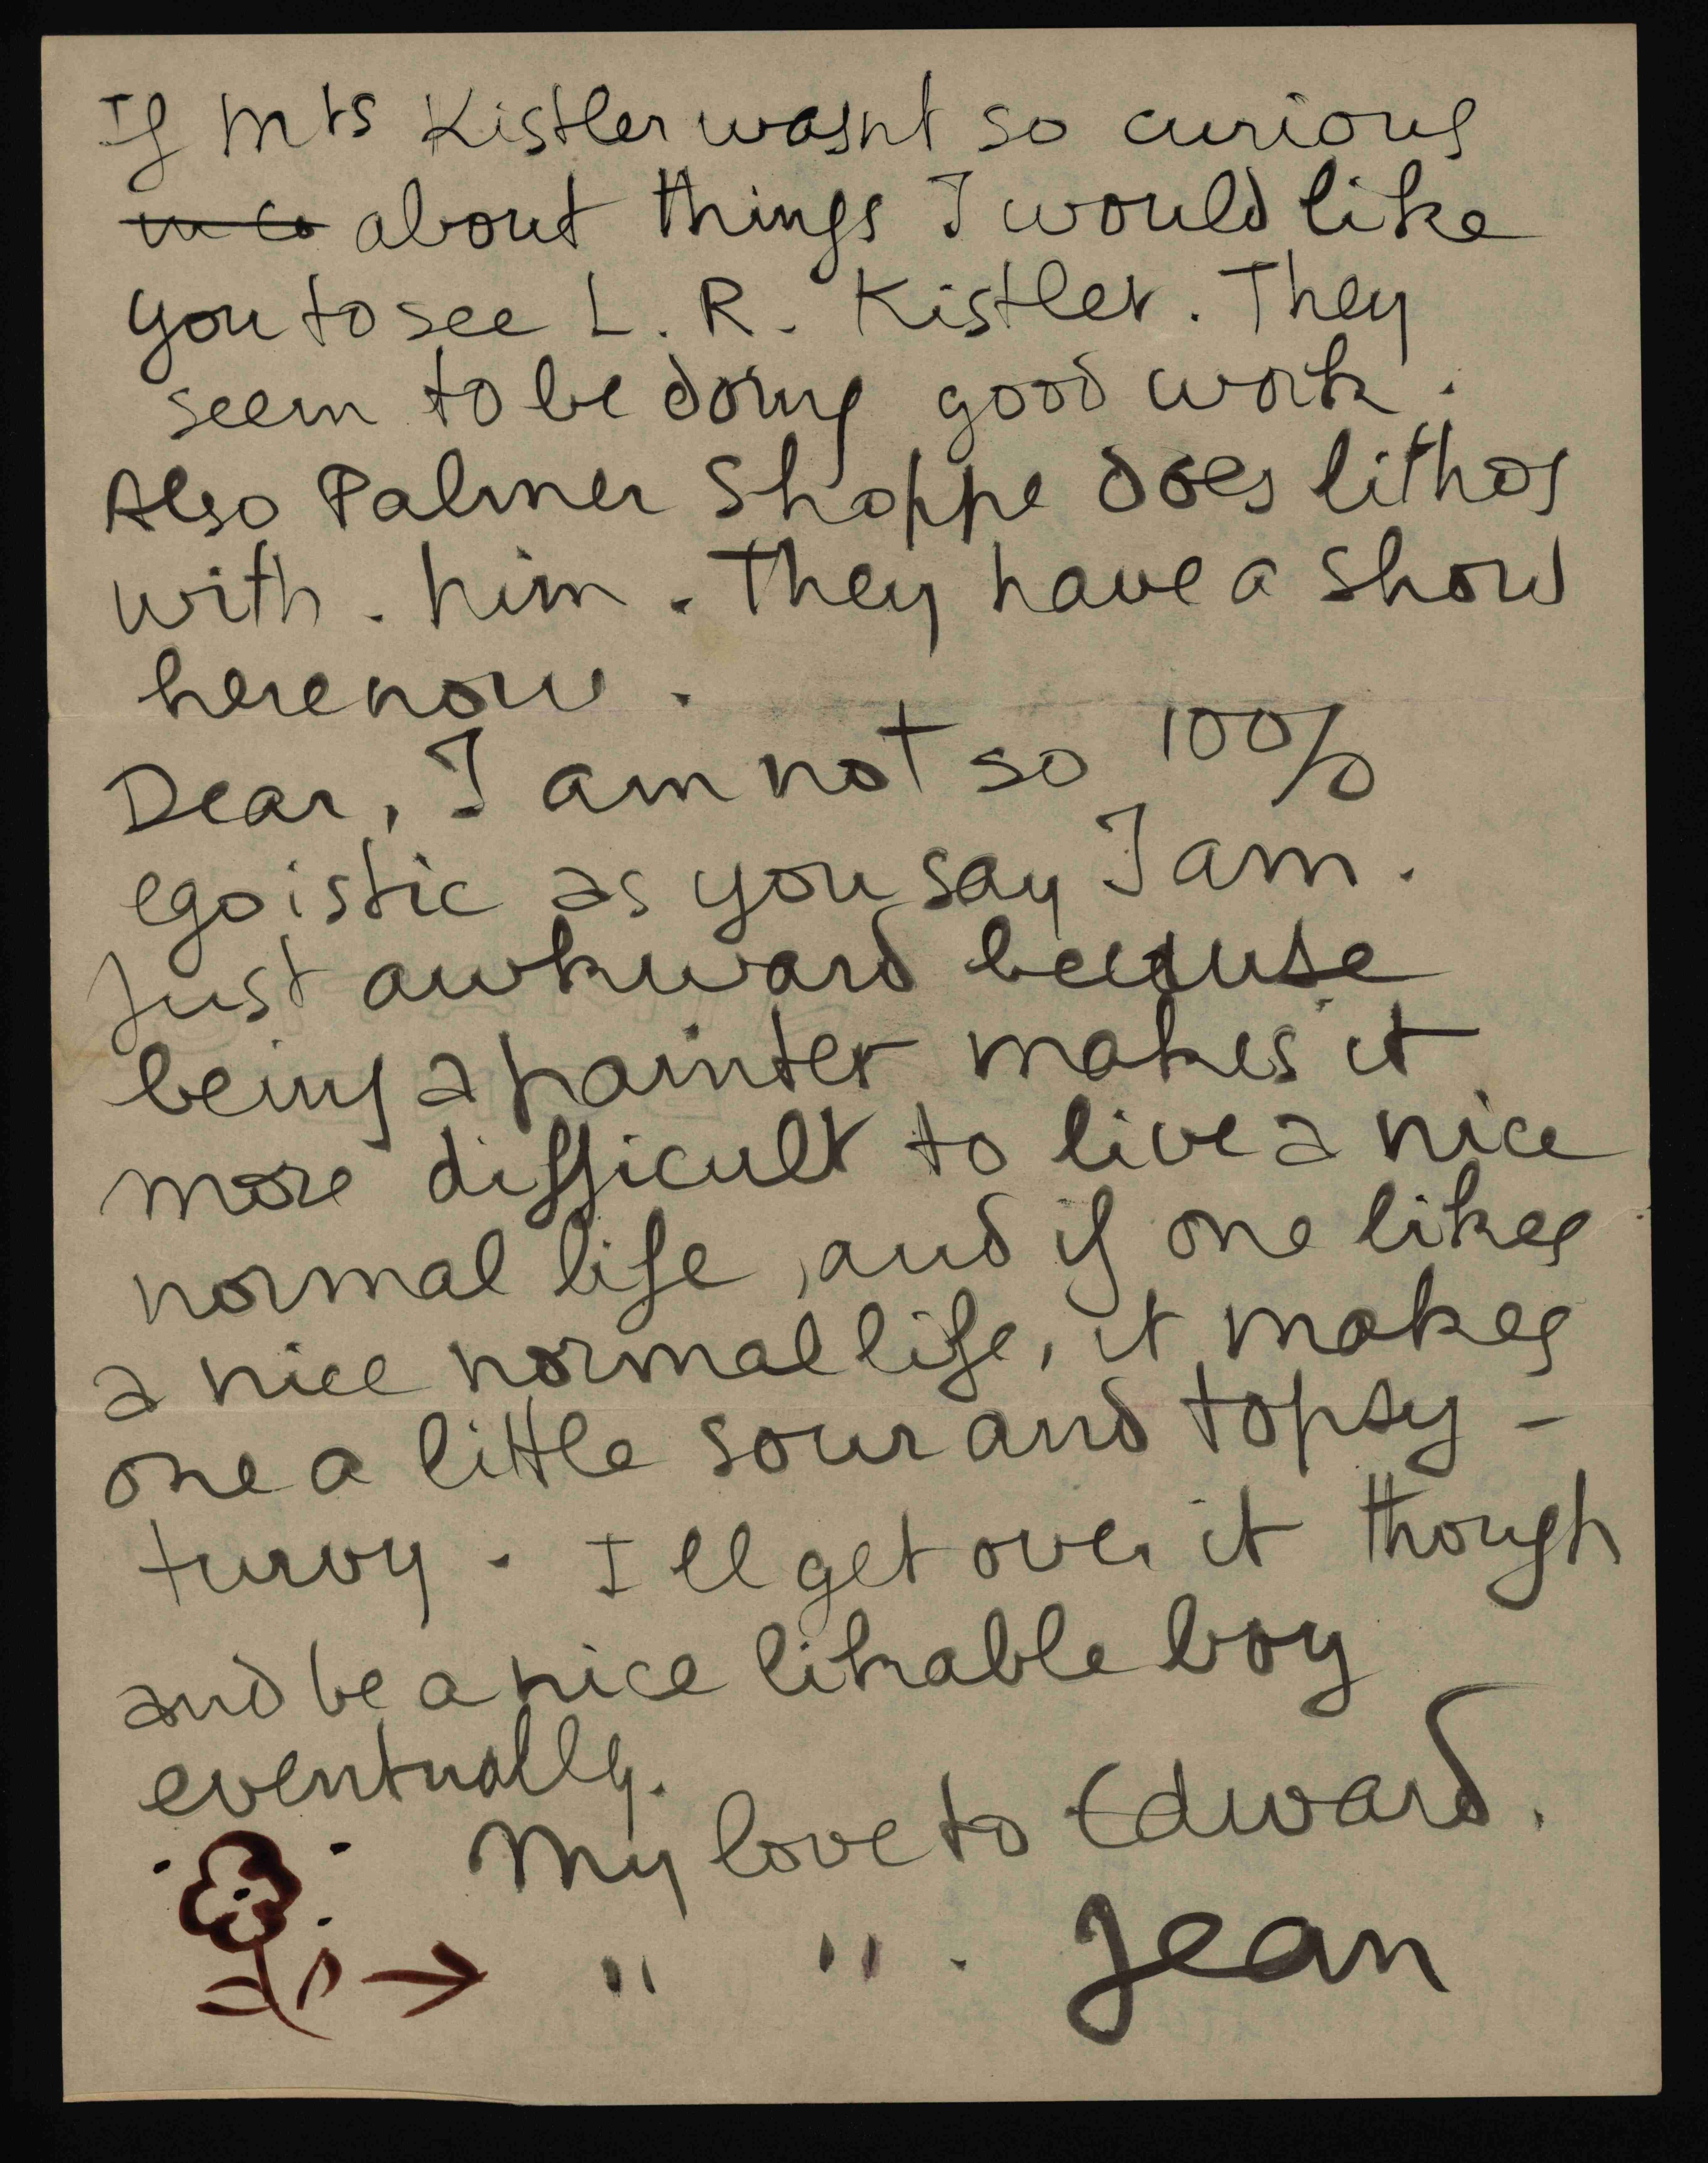 If Mrs Kistler wasnt so curious
about things I would like
you to see L. R. Kistler. They
seem to be doing good work.
Also Palmer Shoppe does lithos
with. him. They have a show
here now.
Dear, I am not so 100%
egoistic as you say I am.
Just awkward because
being a painter makes it
more difficult to live a nice
normal life, and if one likes
a nice normal life, it makes
one a little sour and topsy-
turvy. I ll get over it though
and be a nice likable boy
eventually.
My love to Edward.
" " . Jean